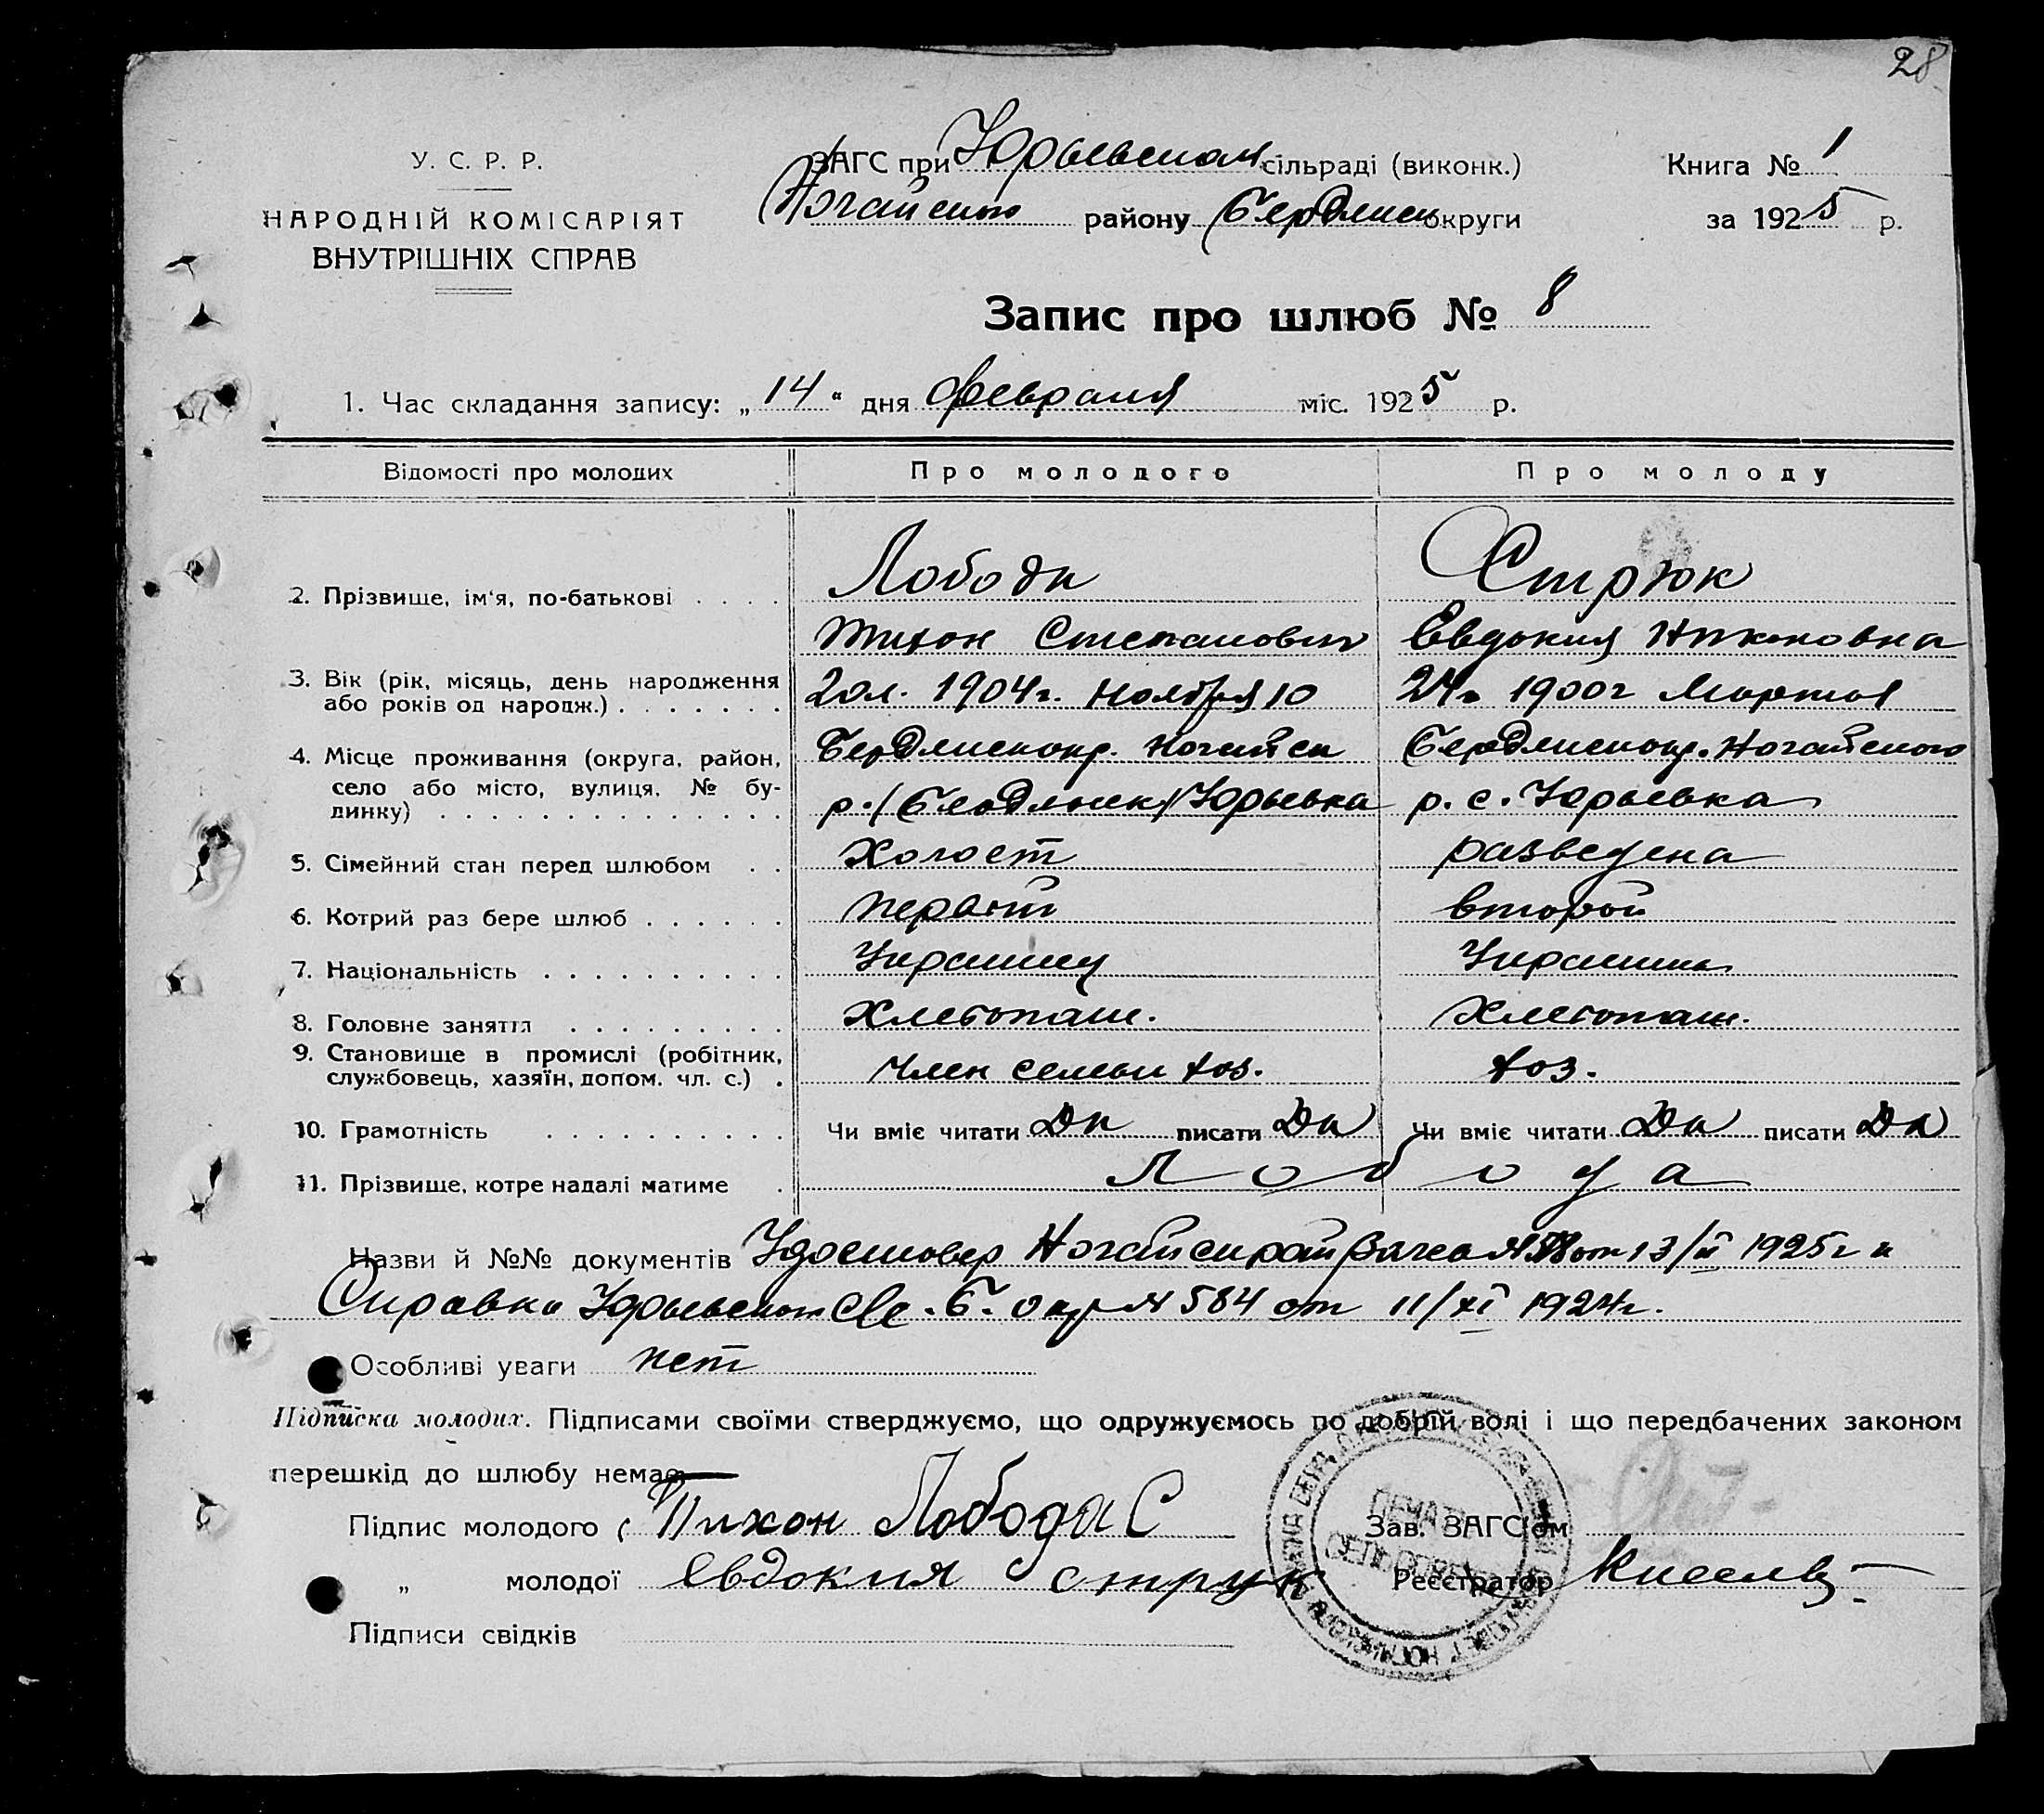 28
У. С. Р. Р.
НАРОДНІЙ КОМІСАРІЯТ
ВНУТРІШНІХ СПРАВ
ЗАГС при Юрьевском сільраді (виконк.)
Ногайского району Бердянск округи
Книга № 1
за 1925 р.
Запис про шлюб № 8
1. Час складання запису: „14" дня февраля міс. 1925 р.
Відомості про молодих Про молодого Про молоду
2. Прізвище, ім'я, по-батькові Лобода Стрюк
Тихон Степанович Евдокия
3. Вік (рік, місяць, день народження 20л. 1904г. Ноября 10 24г 1900г Марта 1
або років од народж.)
4. Місце проживання (округа, район, Бердянск окр. Ногайск Бердянск окр. Ногайского
село або місто, вулиця, № бу- р. (Бердянск) Юрьевка р. с. Юрьевка
динку)
5. Сімейний стан перед шлюбом Холост разведена
6. Котрий раз бере шлюб первый второй
7. Національність Украинец Украинка
8. Головне заняття Хлебопаш. Хлебопаш.
9. Становище в промислі (робітник, член семьи хоз. хоз.
службовець, хазяїн, допом. чл. с.)
10. Грамотність Чи вміє читати Да писати Да Чи вміє читати Да писати Да
11. Прізвище, котре надалі матиме Лобода
Назви й №№ документів Удостовер Ногайск рай Загса от 13/II 1925г и
Справка Юрьевском № 584 от 11/XI 1924г.
Особливі уваги нет
Підписка молодих. Підписами своїми стверджуємо, що одружуємось по добрій волі і що передбачених законом
перешкід до шлюбу немає
Підпис молодого Тихон Лобода С Зав. ЗАГС'ом
„ молодої Евдокия струк Реєстратор
Підписи свідків